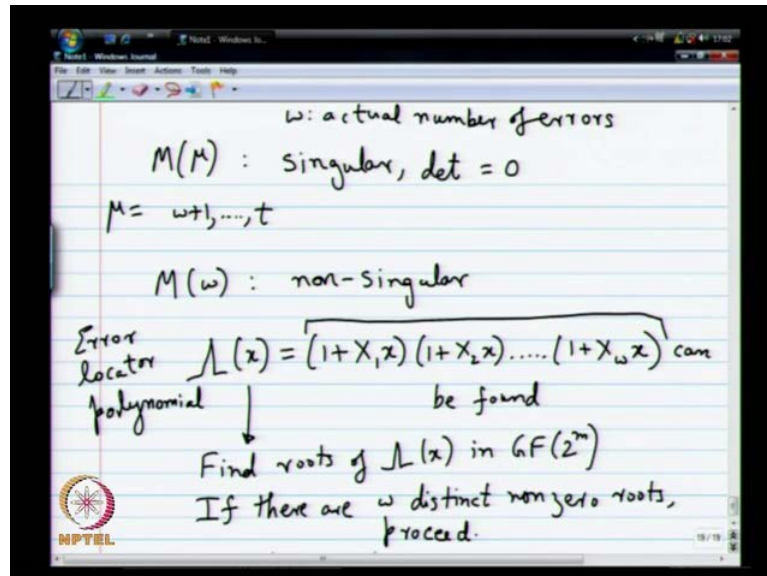 Note1 - Windows Jo...
17:02
Note1 - Windows Journal
File Edit View Insert Actions Tools Help
ω: actual number of errors
M(μ) : singular, det = 0
μ = ω+1, ...., t
M(ω) : non-singular
Error locator polynomial Λ(x) = (1+X₁x)(1+X₂x).....(1+X_ωx) can be found
Find roots of Λ(x) in GF(2^m)
If there are ω distinct nonzero roots,
proceed.
NPTEL
19/19